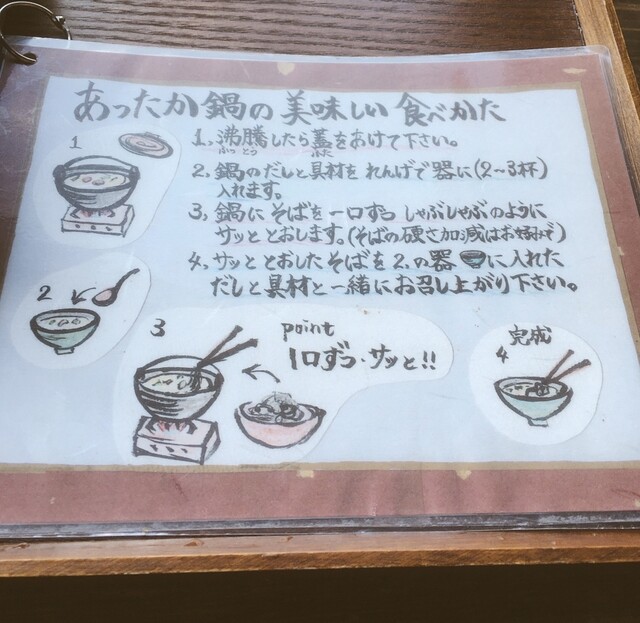 あったか鍋の美味しい食べかた
1
1、沸騰したら蓋をあけて下さい。
ふっとう ふた
2、鍋のだしと具材をれんげで器に(2〜3杯)
入れます。
3、鍋にそばを一口ずつしゃぶしゃぶのように
サッととおします。(そばの硬さ加減はお好みで)
4、サッととおしたそばを2.の器に入れた
だしと具材と一緒にお召し上がり下さい。
2
3
point
1口ずつ・サッと!!
完成
4